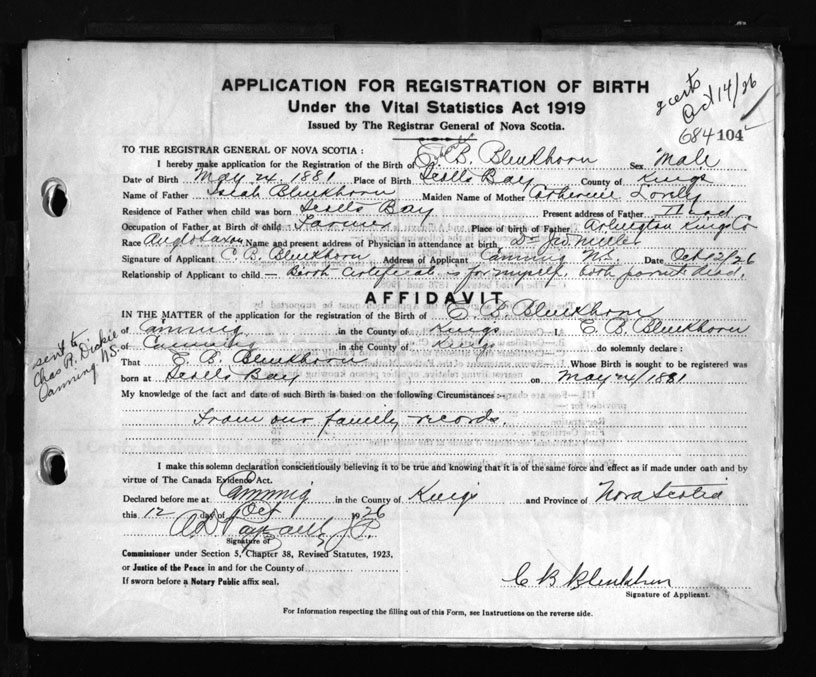 APPLICATION FOR REGISTRATION OF BIRTH
Under the Vital Statistics Act 1919
Issued by The Registrar General of Nova Scotia.
2 certs
Oct 14/26
684 104
TO THE REGISTRAR GENERAL OF NOVA SCOTIA :
I hereby make application for the Registration of the Birth of E. B. Blenkhorn Sex Male
Date of Birth May 24. 1881 Place of Birth Scotts Bay County of Kings
Name of Father Isiah Blenkhorn Maiden Name of Mother
Residence of Father when child was born Scotts Bay Present address of Father Dead
Occupation of Father at Birth of child Farmer Place of birth of Father Arlington Kings Co
Race Anglo Saxon Name and present address of Physician in attendance at birth Dr Miller
Signature of Applicant C. B. Blenkhorn Address of Applicant Canning N.S. Date Oct 12/26
Relationship of Applicant to child — Birth Certificate is for myself. both parents dead.
AFFIDAVIT
IN THE MATTER of the application for the registration of the Birth of E. B. Blenkhorn
of Canning in the County of Kings I, E. B. Blenkhorn
of Canning in the County of Kings do solemnly declare :
That E. B. Blenkhorn Whose Birth is sought to be registered was
born at Scotts Bay on May 24/1881
sent to
Chas R. Dickie
Canning N.S.
My knowledge of the fact and date of such Birth is based on the following Circumstances :-
From our family records.
I make this solemn declaration conscientiously believing it to be true and knowing that it is of the same force and effect as if made under oath and by
virtue of The Canada Evidence Act.
Declared before me at Canning in the County of Kings and Province of Nova Scotia
this 12 day of Oct 1926
J.P.
Signature of
Commissioner under Section 5, Chapter 38, Revised Statutes, 1923,
or Justice of the Peace in and for the County of
If sworn before a Notary Public affix seal.
C B Blenkhorn
Signature of Applicant.
For Information respecting the filling out of this Form, see Instructions on the reverse side.